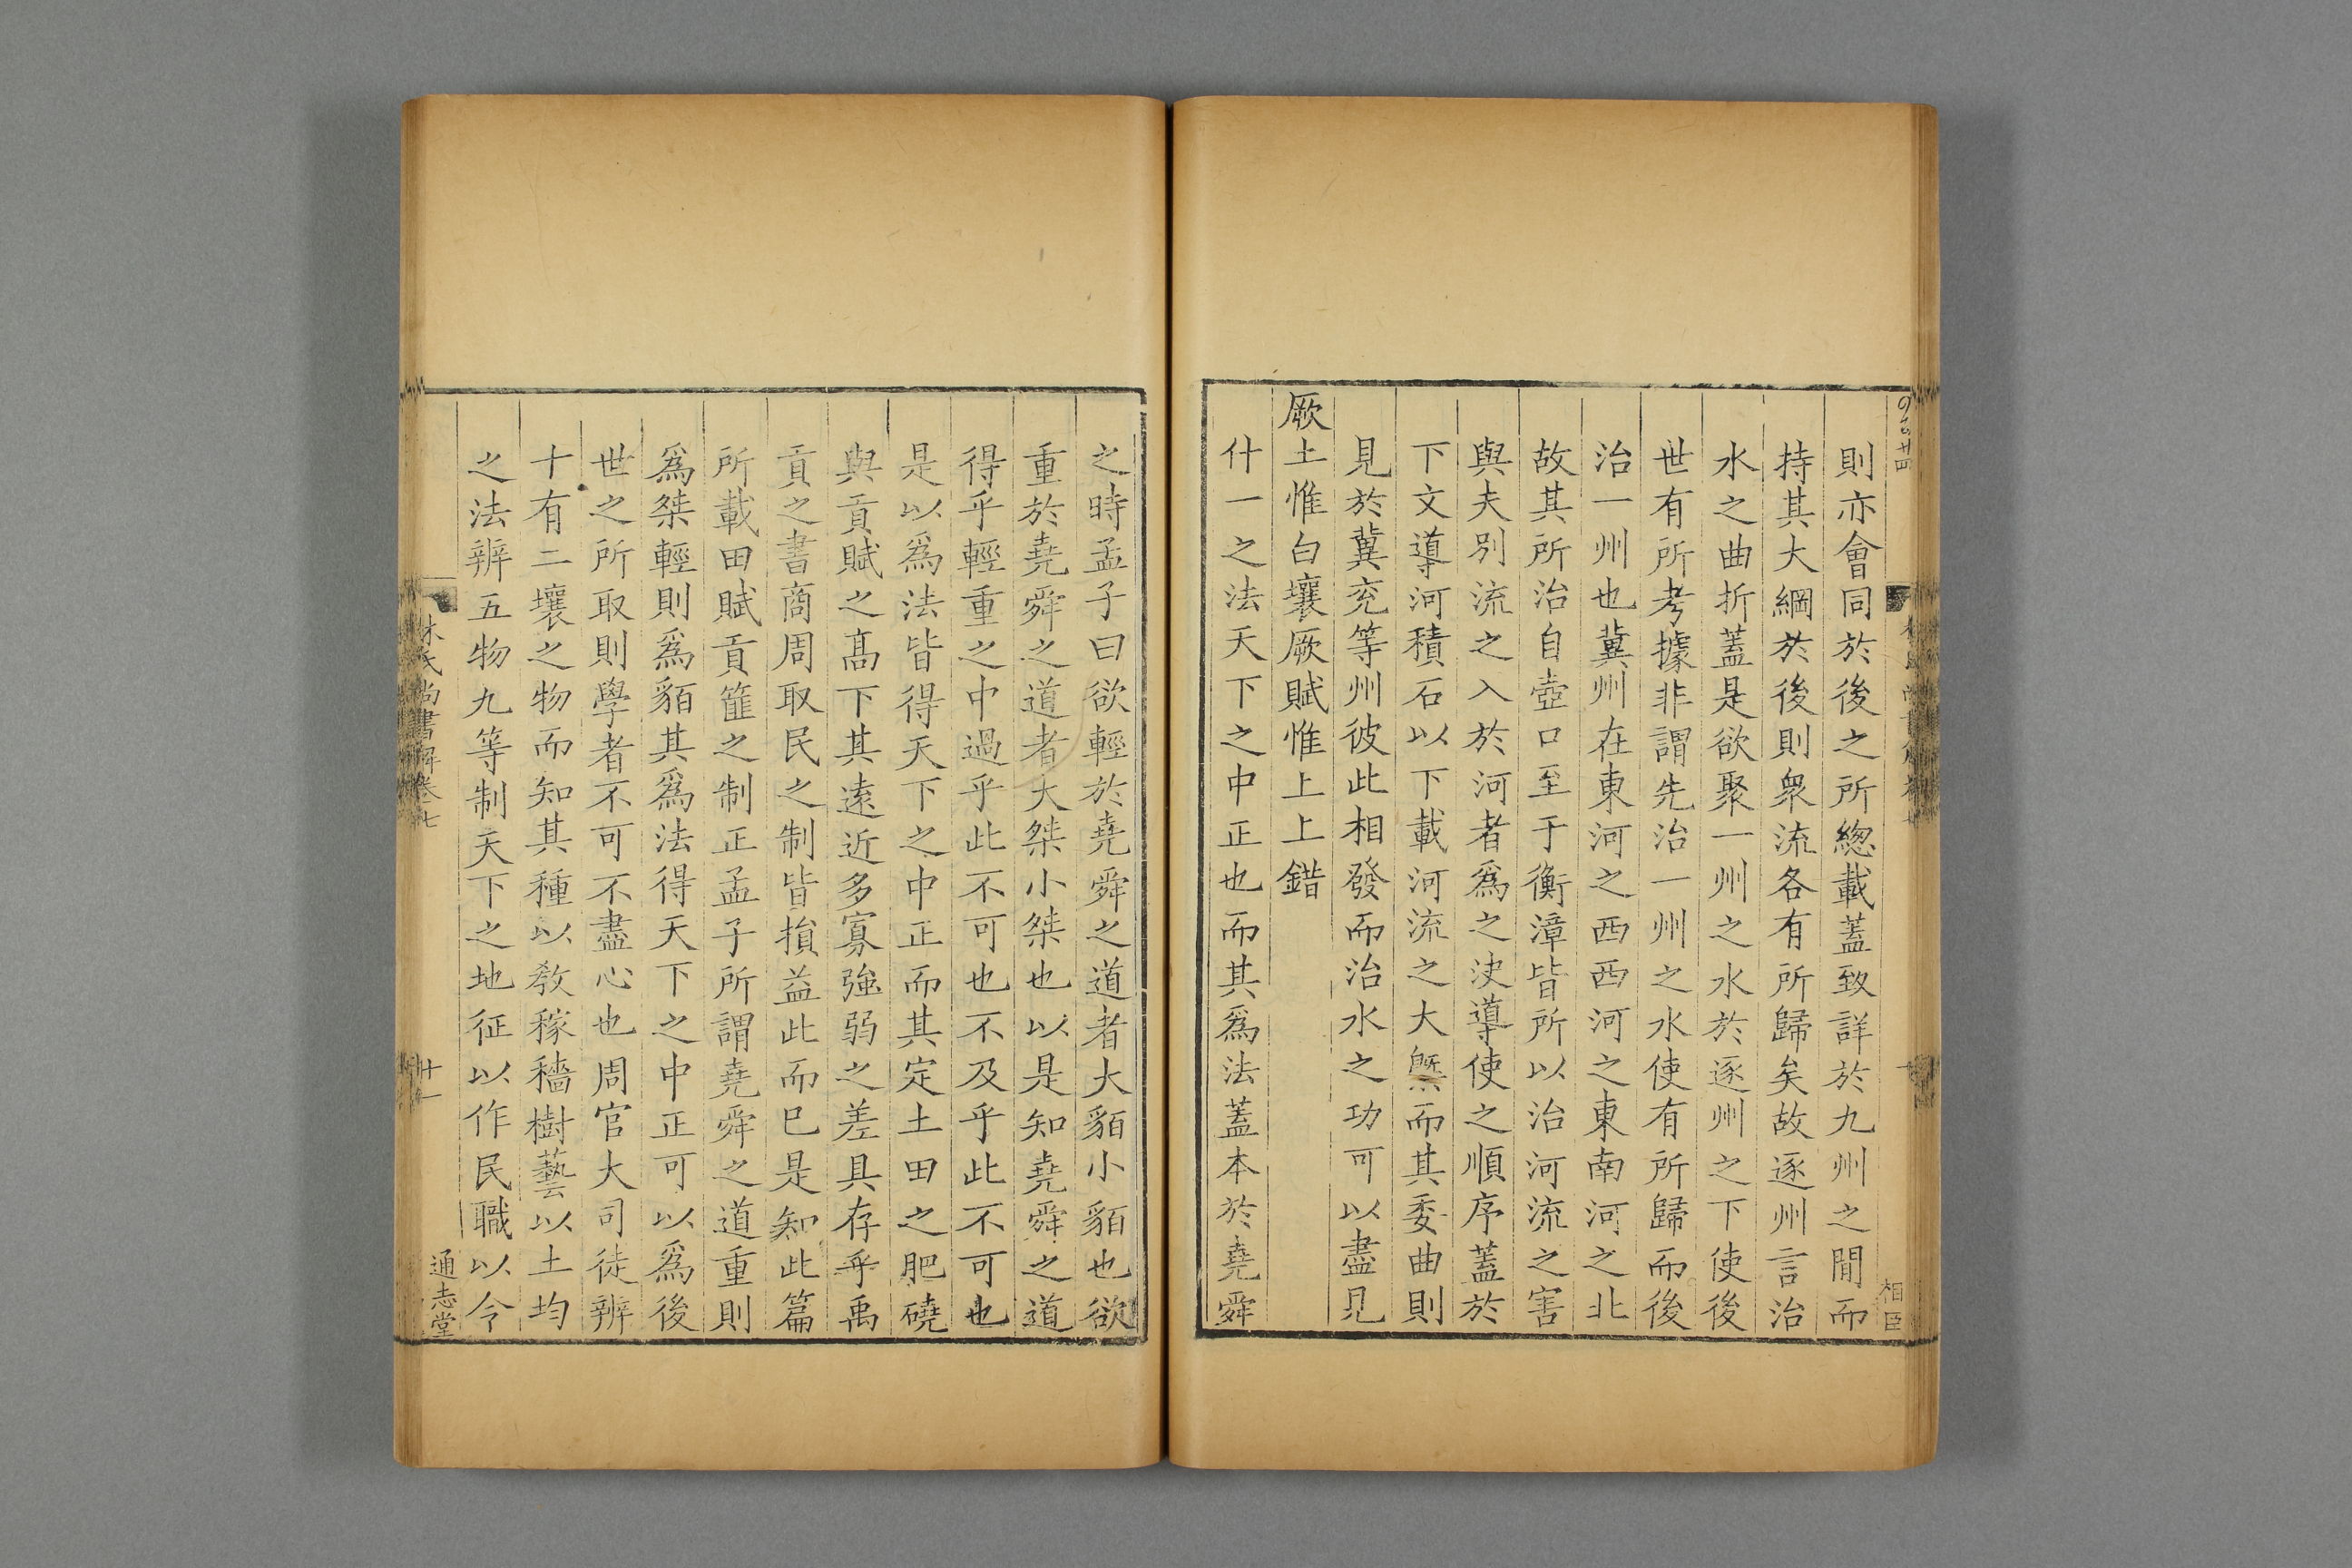 則亦會同於後之所總載蓋致詳於九州之閒而
持其大綱於後則衆流各有所歸矣故逐州言治
水之曲折蓋是欲聚一州之水於逐州之下使後
世有所考據非謂先治一州之水使有所歸而後
治一州也冀州在東河之西西河之東南河之北
故其所治自壺口至于衡漳皆所以治河流之害
與夫別流之入於河者爲之決導使之順序蓋於
下文導河積石以下載河流之大槩而其委曲則
見於冀兖等州彼此相發而治水之功可以盡見
厥土惟白壤厥賦惟上上錯
什一之法天下之中正也而其爲法蓋本於堯舜
相臣
之時孟子曰欲輕於堯舜之道者大貊小貊也欲
重於堯舜之道者大桀小桀也以是知堯舜之道
得乎輕重之中過乎此不可也不及乎此不可也
是以爲法皆得天下之中正而其定土田之肥磽
與貢賦之高下其遠近多寡強弱之差具存乎禹
貢之書商周取民之制皆損益此而已是知此篇
所載田賦貢篚之制正孟子所謂堯舜之道重則
爲桀輕則爲貊其爲法得天下之中正可以爲後
世之所取則學者不可不盡心也周官大司徒辨
十有二壤之物而知其種以敎稼穡樹藝以土均
之法辨五物九等制天下之地征以作民職以令
林氏尚書解卷七
十一
通志堂